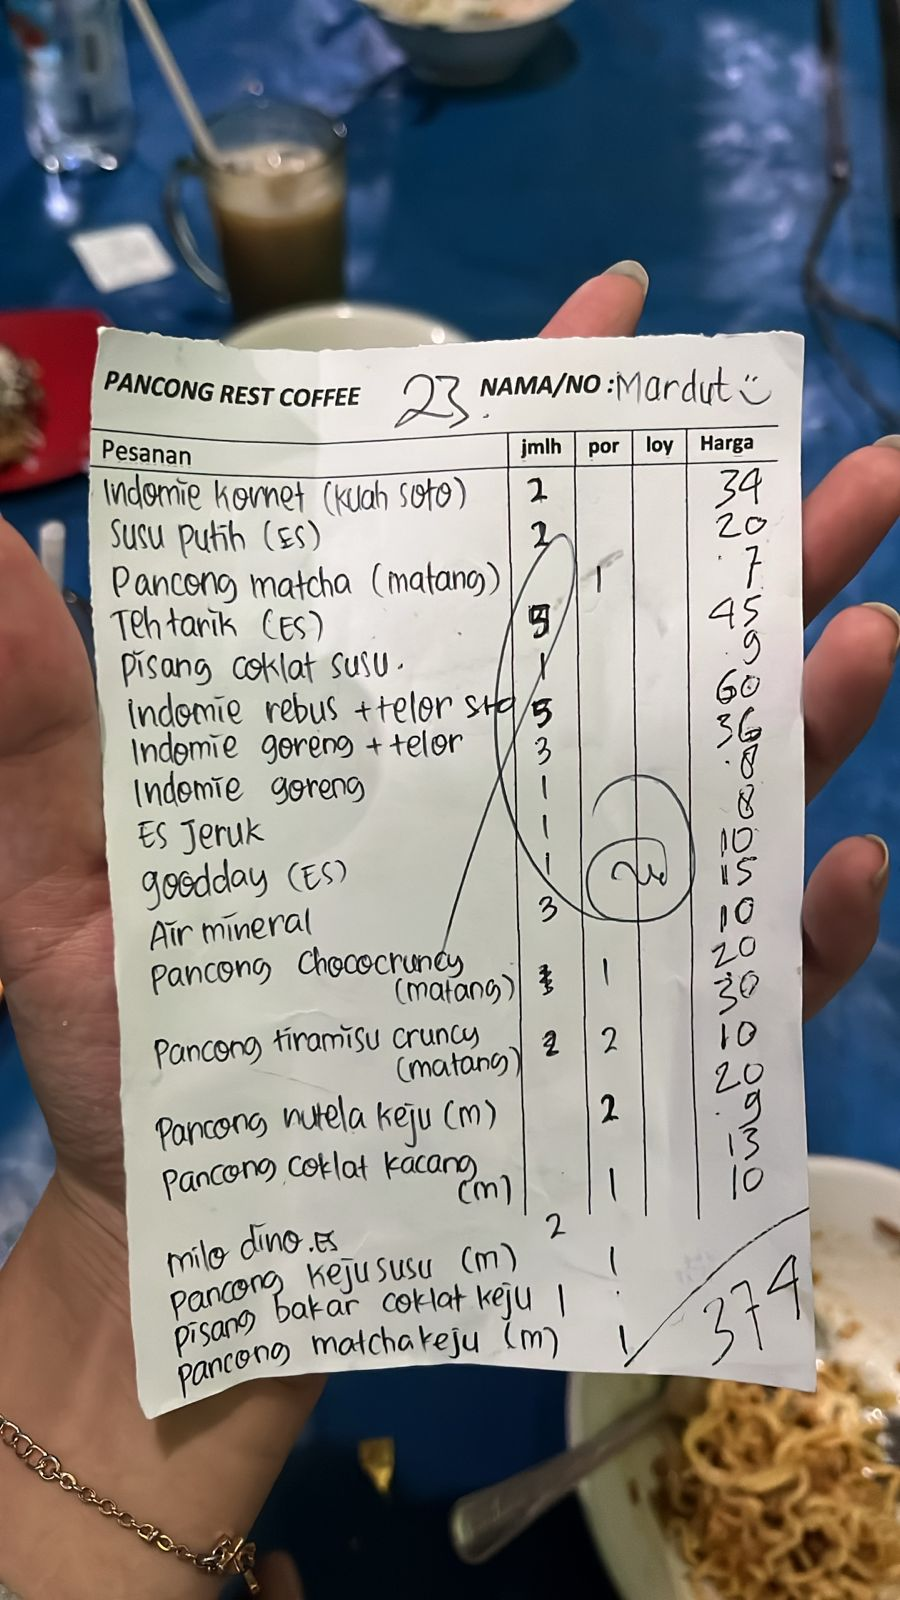 PANCONG REST COFFEE 23. NAMA/NO : Mardut
Pesanan jmlh por loy Harga
Indomie kornet (kuah soto) 2 34
Susu Putih (ES) 2 20
Pancong matcha (matang) 1 7
Teh tarik (ES) 5 45
Pisang coklat susu. 1 9
Indomie rebus + telor sto 5 60
Indomie goreng + telor 3 36
Indomie goreng 1 8
ES Jeruk 1 8
goodday (ES) 1 10
Air mineral 3 15
Pancong Chococruncy 1 10
(matang)
Pancong tiramisu cruncy 2 2 20
(matang)
Pancong nutela keju (m) 2 30
Pancong coklat kacang 1 10
(m)
milo dino.ES 2 20
Pancong keju susu (m) 1 9
Pisang bakar coklat keju 1 13
Pancong matcha keju (m) 1 10
374